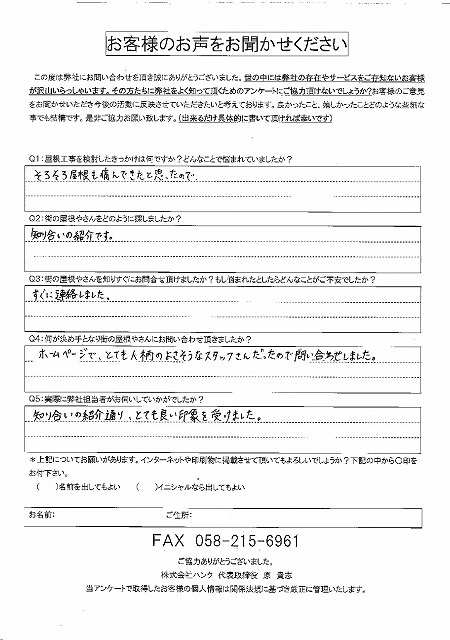 お客様のお声をお聞かせください
この度は弊社にお問い合わせを頂き誠にありがとうございました。世の中には弊社の存在やサービスをご存知ないお客様
が沢山いらっしゃいます。その方たちに弊社をよく知って頂くためのアンケートにご協力頂けないでしょうか?お客様のご意見
をお聞かせいただき今後の活動に反映させていただきたいと考えております。良かったこと、嬉しかったことどのような些細な
事でも結構です。是非ご協力お願い致します。(出来るだけ具体的に書いて頂ければ幸いです)
Q1:屋根工事を検討したきっかけは何ですか?どんなことで悩まれていましたか?
そろそろ屋根も痛んできたと思ったので
Q2:街の屋根やさんをどのように探しましたか?
知り合いの紹介です。
Q3:街の屋根やさんを知りすぐにお問合せ頂けましたか?もし悩まれたとしたらどんなことがご不安でしたか?
すぐに連絡しました。
Q4:何が決め手となり街の屋根やさんにお問い合わせ頂きましたか?
ホームページで、とても人柄のよさそうなスタッフさんだったので問い合わせしました。
Q5:実際に弊社担当者がお伺いしていかがでしたか?
知り合いの紹介通り、とても良い印象を受けました。
*上記についてお願いがあります。インターネットや印刷物に掲載させて頂いてもよろしいでしょうか?下記の中から〇印を
お付下さい。
( )名前を出してもよい ( )イニシャルなら出してもよい
お名前: ご住所:
FAX 058-215-6961
ご協力ありがとうございました。
株式会社ハンク 代表取締役 原 貴志
当アンケートで取得したお客様の個人情報は関係法規に基づき厳正に管理いたします。